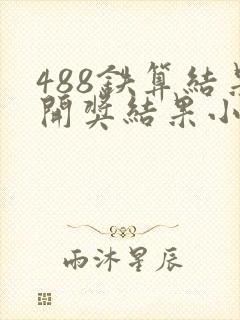 488鉄算结果
開奖结果小
雨沐星辰